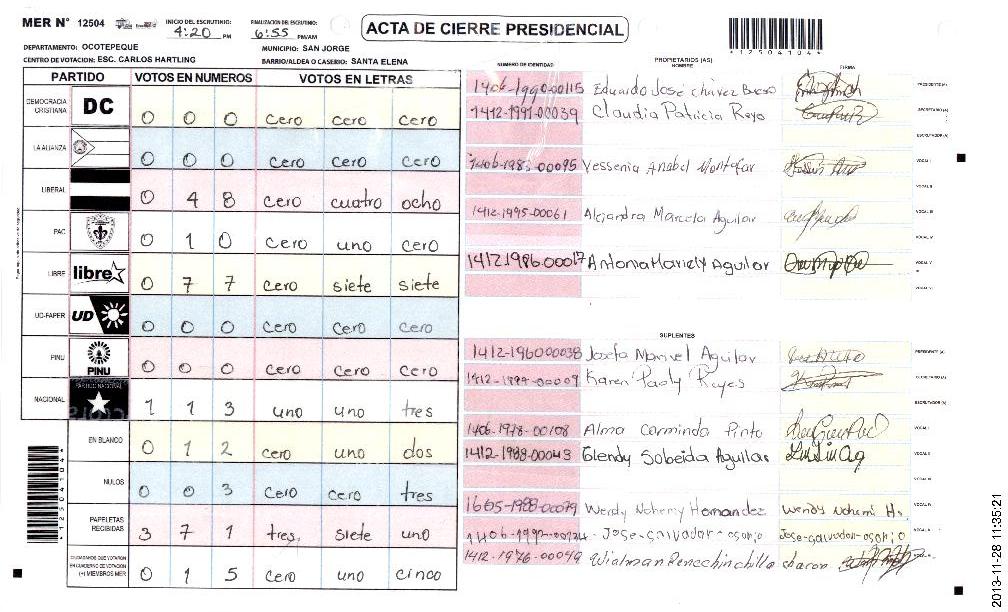 MER N° 12504
INICIO DEL ESCRUTINIO: 4:20 PM
FINALIZACION DEL ESCRUTINIO: 6:55 PM/AM
ACTA DE CIERRE PRESIDENCIAL
*12504104*
DEPARTAMENTO: OCOTEPEQUE
MUNICIPIO: SAN JORGE
CENTRO DE VOTACION: ESC. CARLOS HARTLING
BARRIO/ALDEA O CASERIO: SANTA ELENA
PARTIDO VOTOS EN NUMEROS VOTOS EN LETRAS
DEMOCRACIA CRISTIANA DC 0 0 0 cero cero cero
LA ALIANZA 0 0 0 cero cero cero
LIBERAL 0 4 8 cero cuatro ocho
PAC 0 1 0 cero uno cero
LIBRE libre 0 7 7 cero siete siete
UD-FAPER UD 0 0 0 cero cero cero
PINU PINU 0 0 0 cero cero cero
NACIONAL PARTIDO NACIONAL 1 1 3 uno uno tres
EN BLANCO 0 1 2 cero uno dos
NULOS 0 0 3 cero cero tres
PAPELETAS RECIBIDAS 3 7 1 tres, siete uno
CIUDADANOS QUE VOTARON EN CUADERNO DE VOTACION (+) MIEMBROS MER 0 1 5 cero uno cinco
*12504104*
NUMERO DE IDENTIDAD PROPIETARIOS (AS) NOMBRE FIRMA
1406-1990-00115 Eduardo José chavez PRESIDENTE (A)
1412-1991-00039 Claudia Patricia Reyo SECRETARIO (A)
ESCRUTADOR (A)
00095 Yessenia Anabel Montofar VOCAL I
VOCAL II
1412-1995-00061 Alejandra Marcela Aguilar VOCAL III
VOCAL IV
1412 1986-00017 Antonia Mariely Aguilar VOCAL V
VOCAL VI
SUPLENTES
1412-1960 00038 Josefa Marivel Aguilar PRESIDENTE (A)
00009 Karen Paoly Reyes SECRETARIO (A)
ESCRUTADOR (A)
1406-1978-00108 Alma Carminda Pinto VOCAL I
1412-1988-00043 Glendy Sobeida Aguilar VOCAL II
Wendy Nohemy Hernandez Wendy Nohemi H. VOCAL IV
Jose-salvador-osorio Jose-salvador-osorio VOCAL V
1412-1976-00049
2013-11-28 11:35:21